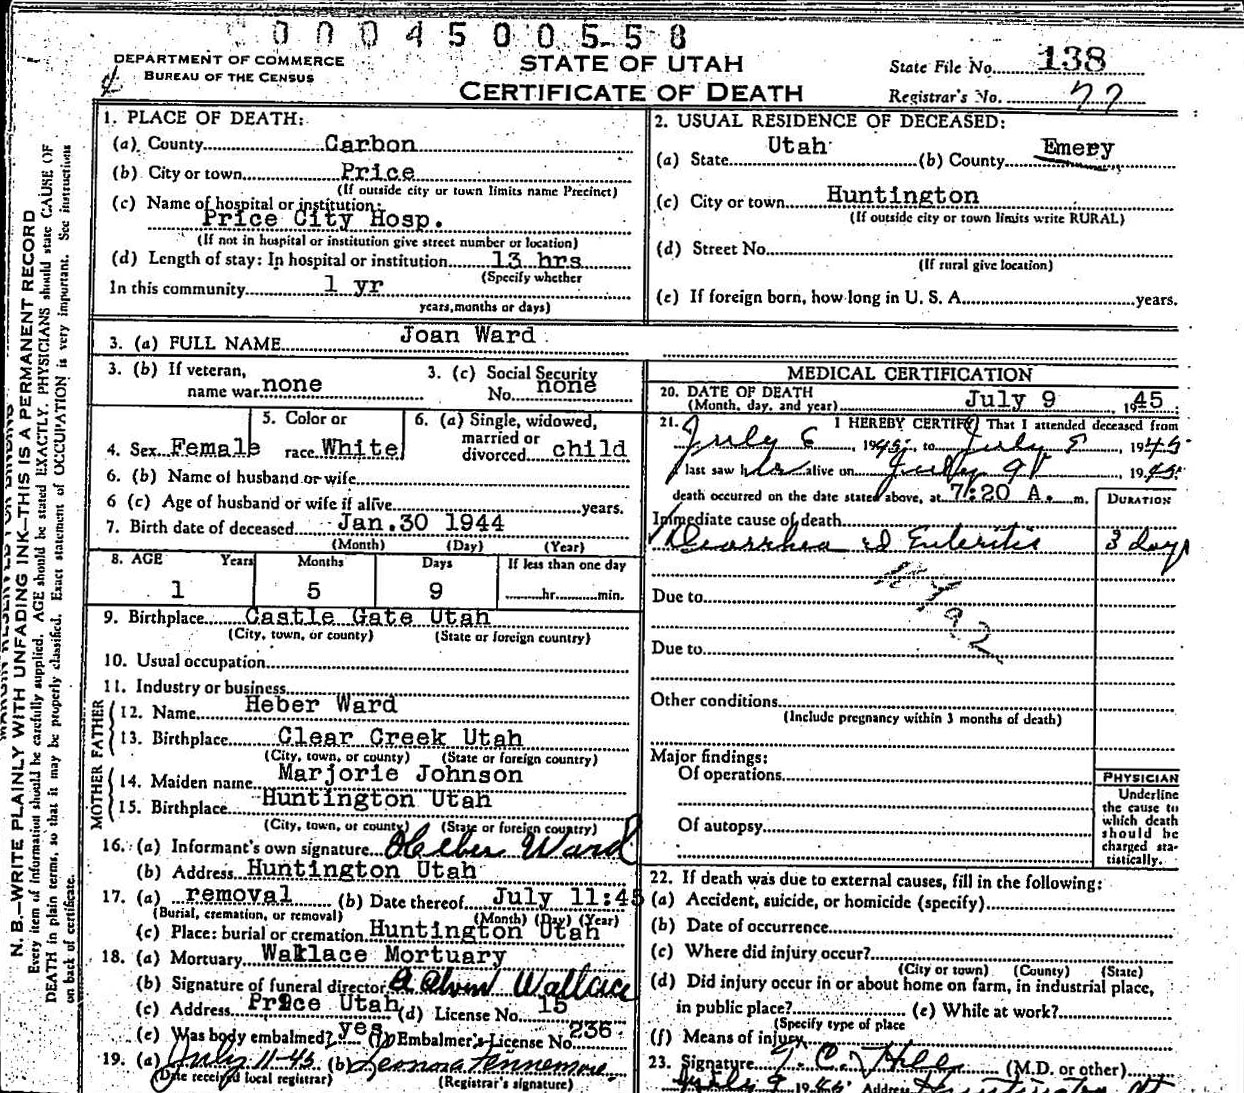 0004500558
DEPARTMENT OF COMMERCE
BUREAU OF THE CENSUS
STATE OF UTAH
CERTIFICATE OF DEATH
State File No. 138
Registrar's No. 77
1. PLACE OF DEATH:
(a) County Carbon
(b) City or town Price
(If outside city or town limits name Precinct)
(c) Name of hospital or institution:
Price City Hosp.
(If not in hospital or institution give street number or location)
(d) Length of stay: In hospital or institution 13 hrs
(Specify whether
In this community 1 yr
years, months or days)
2. USUAL RESIDENCE OF DECEASED:
(a) State Utah (b) County Emery
(c) City or town Huntington
(If outside city or town limits write RURAL)
(d) Street No.
(If rural give location)
(e) If foreign born, how long in U. S. A. years.
3. (a) FULL NAME Joan Ward
3. (b) If veteran,
name war none
3. (c) Social Security
No. none
4. Sex Female
5. Color or
race White
6. (a) Single, widowed,
married or
divorced child
6. (b) Name of husband or wife
6 (c) Age of husband or wife if alive years.
7. Birth date of deceased Jan. 30 1944
(Month) (Day) (Year)
8. AGE Years Months Days If less than one day
1 5 9 hr. min.
9. Birthplace Castle Gate Utah
(City, town, or county) (State or foreign country)
10. Usual occupation
11. Industry or business
FATHER
12. Name Heber Ward
13. Birthplace Clear Creek Utah
(City, town, or county) (State or foreign country)
MOTHER
14. Maiden name Marjorie Johnson
15. Birthplace Huntington Utah
(City, town, or county) (State or foreign country)
16. (a) Informant's own signature Heber Ward
(b) Address Huntington Utah
17. (a) removal (b) Date thereof July 11:45
(Burial, cremation, or removal) (Month) (Day) (Year)
(c) Place: burial or cremation Huntington Utah
18. (a) Mortuary Wallace Mortuary
(b) Signature of funeral director Wallace
(c) Address Price Utah (d) License No. 15
(e) Was body embalmed? yes (f) Embalmer's License No. 236
19. (a) July 11-45 (b) Leonora Fennemore
(Date received local registrar) (Registrar's signature)
MEDICAL CERTIFICATION
20. DATE OF DEATH
(Month, day, and year) July 9, 1945
21. I HEREBY CERTIFY That I attended deceased from
July 6, 1945, to July 9, 1945
I last saw alive on July 9, 1945
death occurred on the date stated above, at 7:20 A. m.
DURATION
Immediate cause of death
Diarrhea & Enteritis 3 days
Due to
Due to
Other conditions
(Include pregnancy within 3 months of death)
Major findings:
Of operations
Of autopsy
PHYSICIAN
Underline
the cause to
which death
should be
charged sta-
tistically.
22. If death was due to external causes, fill in the following:
(a) Accident, suicide, or homicide (specify)
(b) Date of occurrence
(c) Where did injury occur?
(City or town) (County) (State)
(d) Did injury occur in or about home on farm, in industrial place,
in public place? (e) While at work?
(Specify type of place
(f) Means of injury
23. Signature T. C. Hill (M.D. or other)
July 9 1945 Address Huntington Ut
N. B.—WRITE PLAINLY WITH UNFADING INK—THIS IS A PERMANENT RECORD
Every item of information should be carefully supplied. AGE should be stated EXACTLY. PHYSICIANS should state CAUSE OF
DEATH in plain terms, so that it may be properly classified. Exact statement of OCCUPATION is very important. See instructions
on back of certificate.